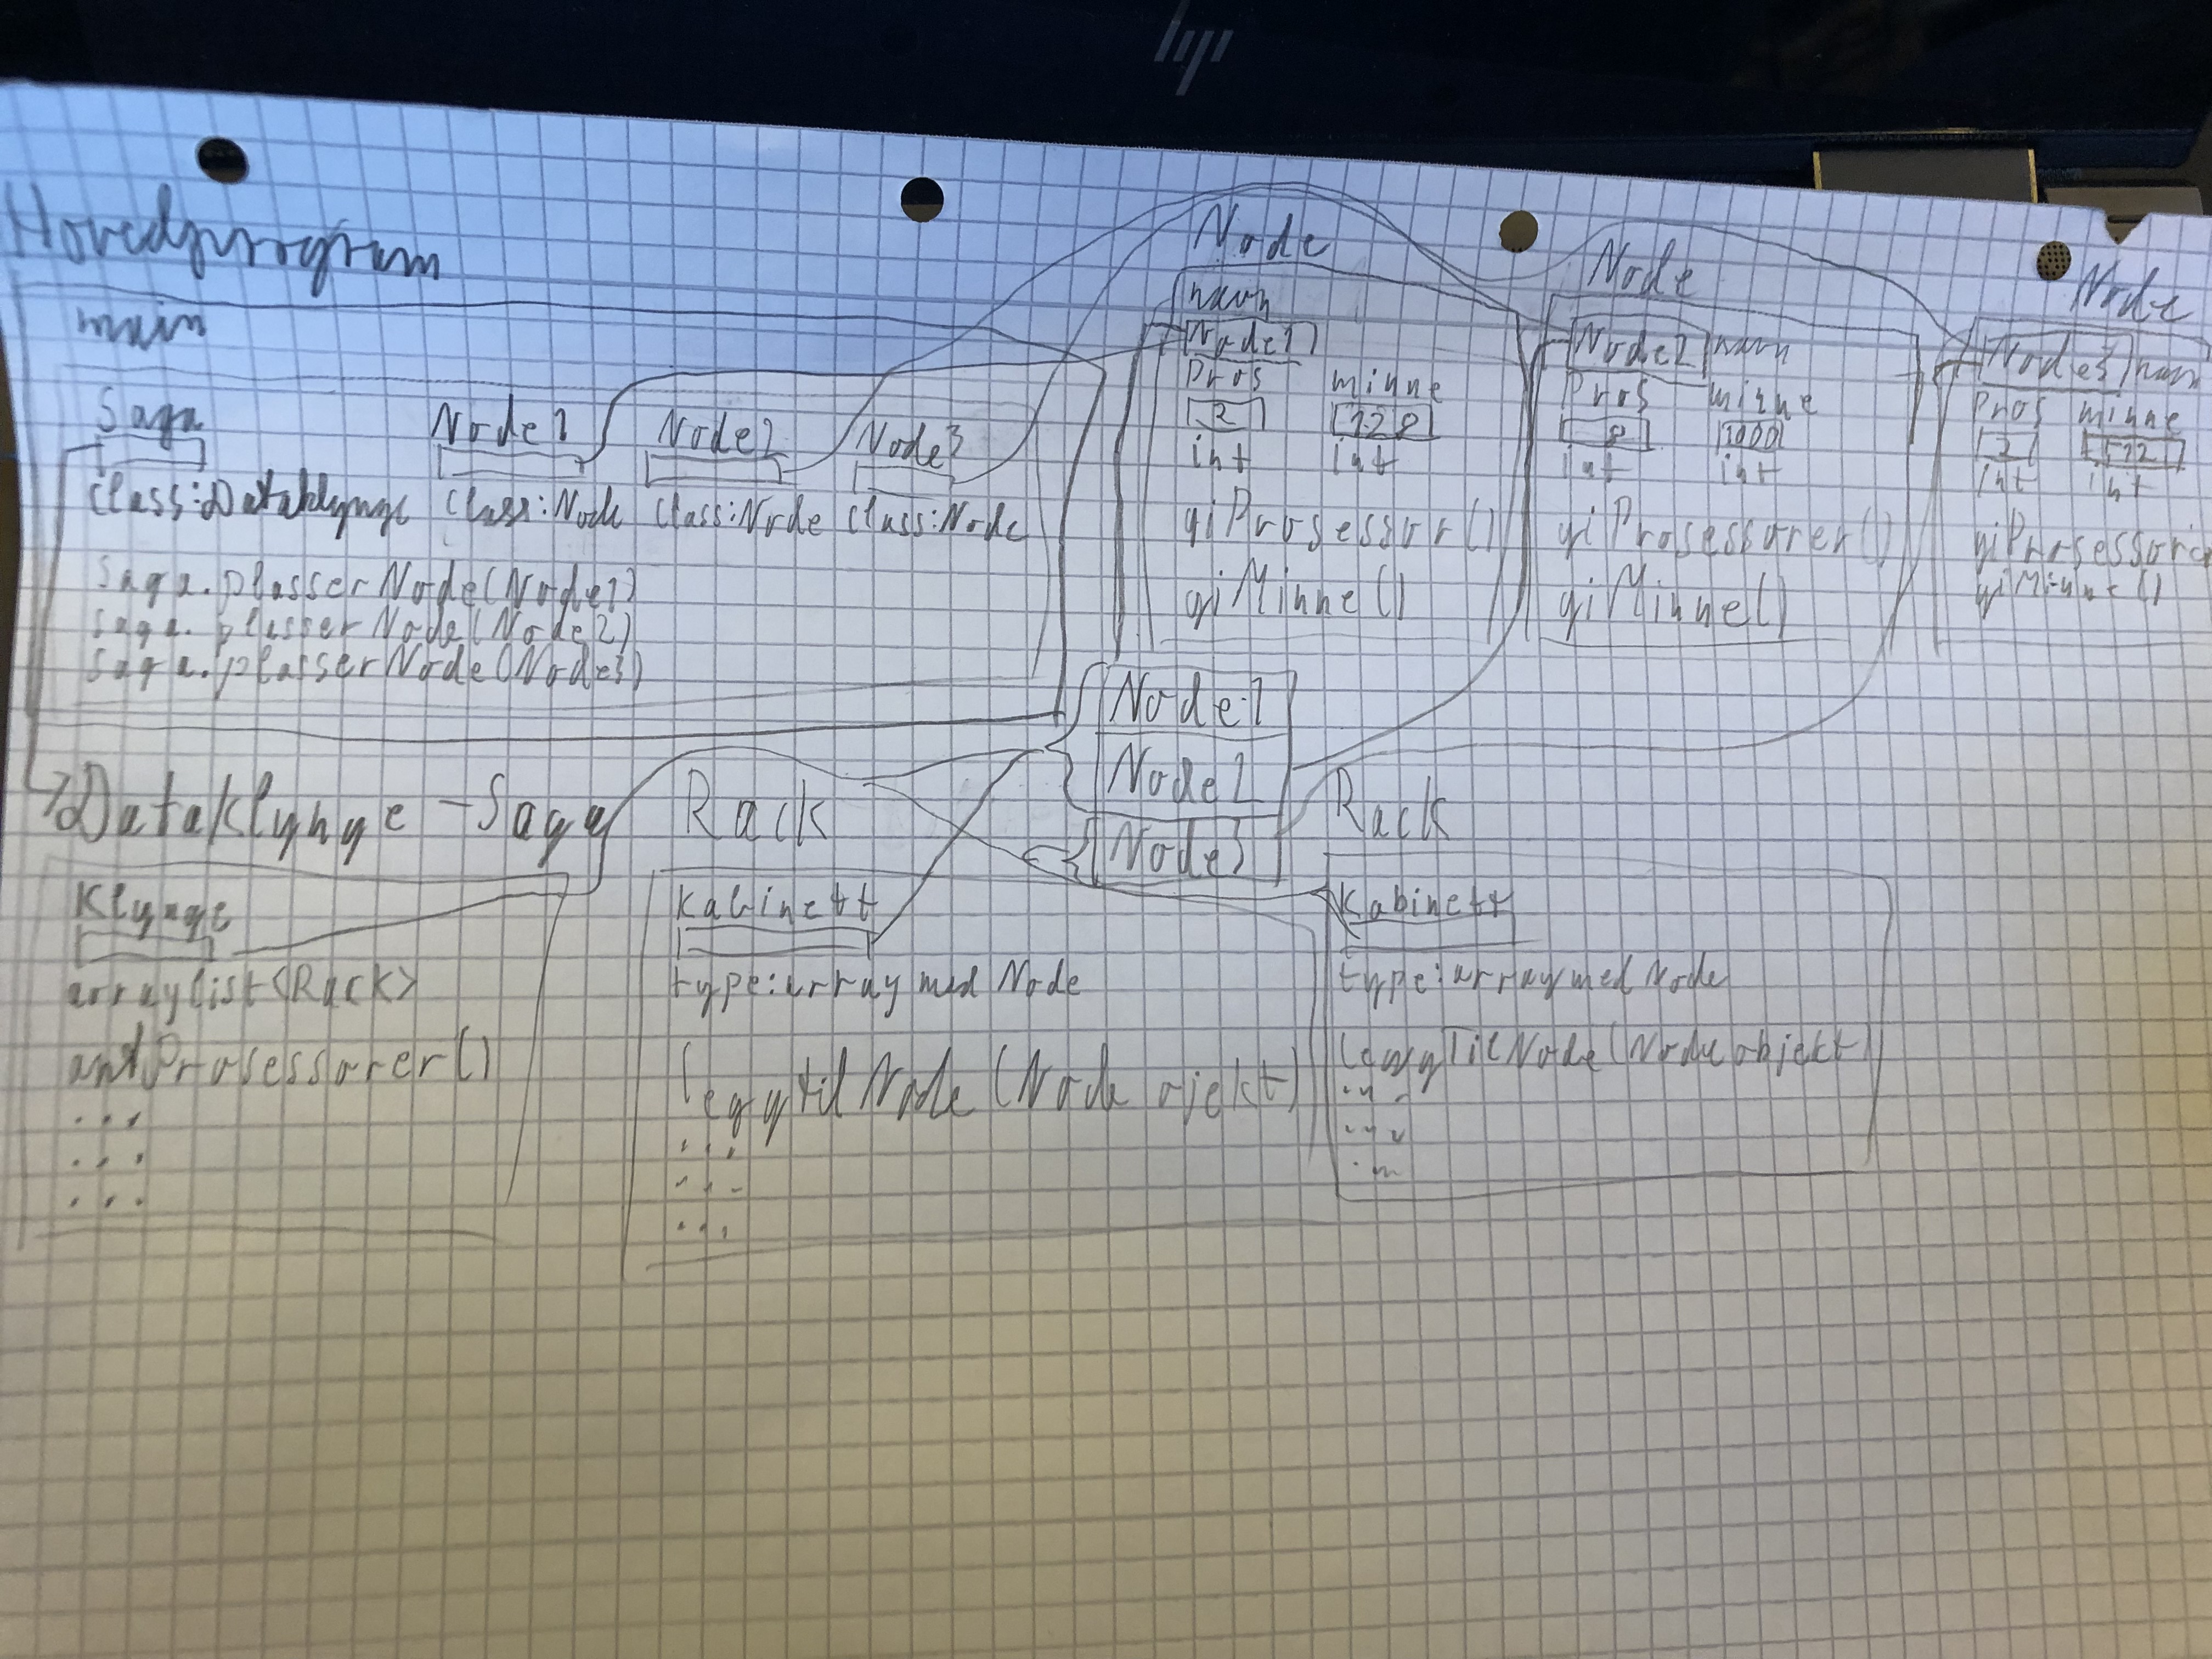 hp
Hovedprogram
main
Saga
Node1
Node2
Node3
class:Dataklynge
class:Node
class:Node
class:Node
saga.plasserNode(Node1)
saga.plasserNode(Node2)
saga.plasserNode(Node3)
Node
navn
Node1
Pros minne
2 128
int int
giProsessor()
giMinne()
Node
Node2 navn
Pros minne
8 1000
int int
giProsessorer()
giMinne()
Node
Node3 navn
Pros minne
2
int int
giMinne()
Node1
Node2
Node3
Dataklynge - Saga
Klynge
arraylist<Rack>
antProsessorer()
...
...
...
Rack
Kabinett
type:array med Node
leggtilNode(Node ojekt)
...
...
...
Rack
Kabinett
type:array med Node
leggTilNode(Node objekt)
...
...
...